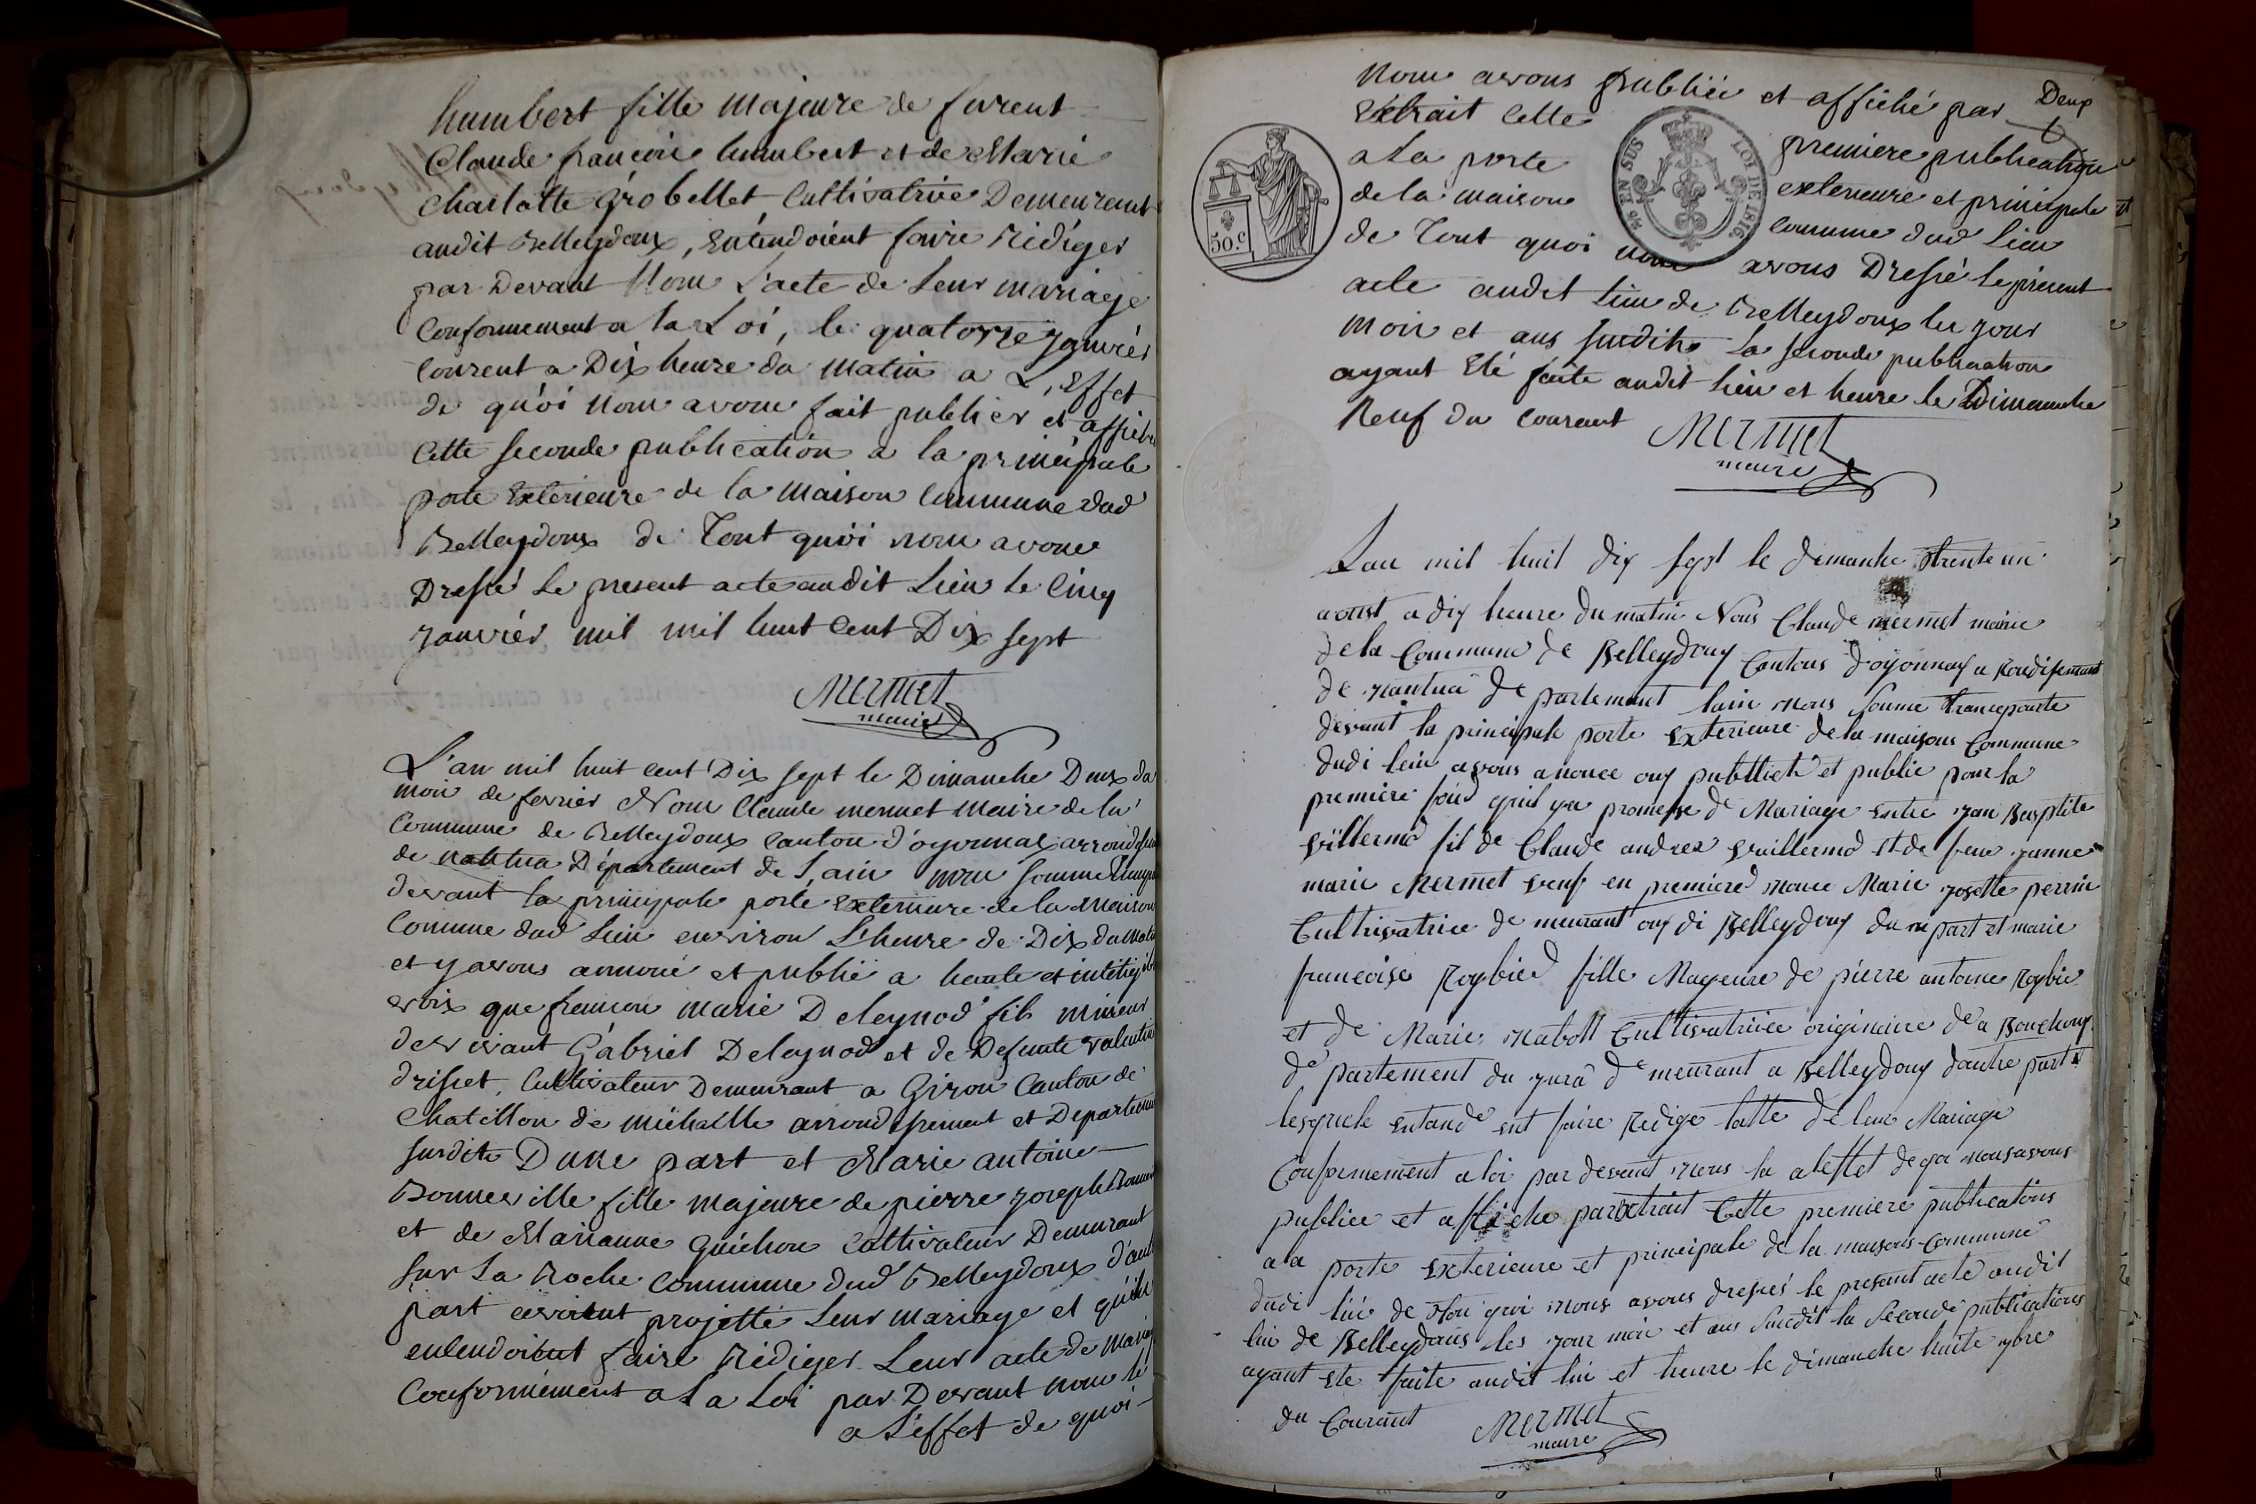 humbert fille majeure de furent
Claude françois humbert et de Marie
Charlotte Grobellet Cultivatrice Demeurant
audit Belleydoux, Entendoient faire Rédiger
par Devant Nous L'acte de Leur mariage
Conformement a la Loi, le quatorze Janvier
Courent a Dix heure du matin a L'Effet
de quoi nous avons fait publier et affiché
Cette seconde publication a la principale
porte Exterieure de la Maison Commune dud
Belleydoux de Tout quoi nous avons
Dressé Le present acte audit Lieu le Cinq
Janvier mil mil huit Cent Dix sept
Mermet
maire
L'an mil huit cent Dix sept le Dimanche Deux du
mois de fevrier Nous Claude mermet Maire de la
Commune de Belleydoux Canton d'oyonnax
de nantua Département de L'ain nous somme
devant la principale porte Exterieure de la Maison
Comune dud Lieu environ L'heure de Dix du
et y avons annoncé et publié a haute et
voix que françois marie Deleynod fils mineur
de vivant Gabriel Deleynod et de Defunte
Drisset, Cultivateur Demeurant a Giron Canton de
Chatillon de Michaille arrondissement et
susdits D'une part et Marie antoine
Bonneville fille majeure de pierre Joseph
et de Marianne Guichon Cultivateur Demeurant
sur La Roche Commune dud Belleydoux
part avoient projetté Leur mariage et
entendoient faire Rédiger Leur acte de
Conformément a La Loi par Devant nous
a L'effet de quoi
Deux
Nous avons publiée et affiché par
Extrait Cette premiere publication
a La porte exterieure et principale
de la maison Commune dud Lieu
de Tout quoi nous avons Dressé Le présent
acte audit Lieu de Belleydoux les jour
mois et ans susdits La seconde publication
ayant Eté faite audit lieu et heure le Dimanche
Neuf du courant
Mermet
maire
50.c
EN SUS
LOI DE 1816
Lan mil huit dix sept le dimanche trente un
aoust a dix heure du matin Nous Claude mermet maire
de la Commune de Belleydoux Cantons d'oyonnax
de nantua de partement lain nous somme
devant la principale porte Exterieure de la maisons Commune
dudi leiu avons anonce et public pour la
premiere quil ya promesse de Mariage Entre Jan
fil de Claude andrez et de feue Janne
marie Mermet veuf en premiere Marie Josette perrin
Cultivatrice de meurant di Belleydoux dune part et marie
francoise fille Mageure de pierre antoine
et de Marie Cultivatrice originaire de a
de partement du Jura de meurant a Belleydoux dautre part
lesquels Entande ent faire Redige latte de leur Mariage
a loi par devant Nous la aleffet de nous avons
publiee et affiche par Cette premiere publications
ala porte Exterieure et principale de la maisons Commune
dudi de tou qui nous avons le presant acte audit
de Belleydous les Jour mois et ans la Seconde publications
ayant Ete faite audit et heure le dimanche
du Courant
Mermet
maire